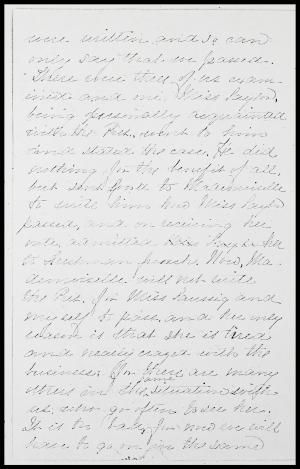 were written and so can
only say that we passed.
There were three of us exam-
ined and one, Miss Taylor,
being personally acquainted
with the Pres. went to him
and stated the case. He did
nothing for the benefit of all,
but sent back to Mademoiselle
to write him how Miss Taylor
passed, and on receiving her
note, admitted Miss Taylor
to Freshman French. Now, Ma-
demoiselle will not write
the Pres. for Miss Taussig and
myself to pass and her only
reason is that she is tired
and nearly crazed with the
business; for there are many
others in the same situation with
us, who go often to see her.
It is too late for now we will
have to go on in the same